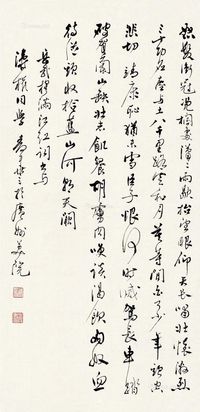 怒髮衝冠憑欄處瀟瀟雨歇抬望眼仰天長嘯壯懷激烈
三十功名塵與土八千里路雲和月莫等閒白了少年頭空
悲切靖康恥猶未雪臣子恨何時滅駕長車踏
破賀蘭山缺壯志飢餐胡虜肉笑談渴飲匈奴血
待從頭收拾舊山河朝天闕
岳武穆滿江紅詞
同學 於廣州美院